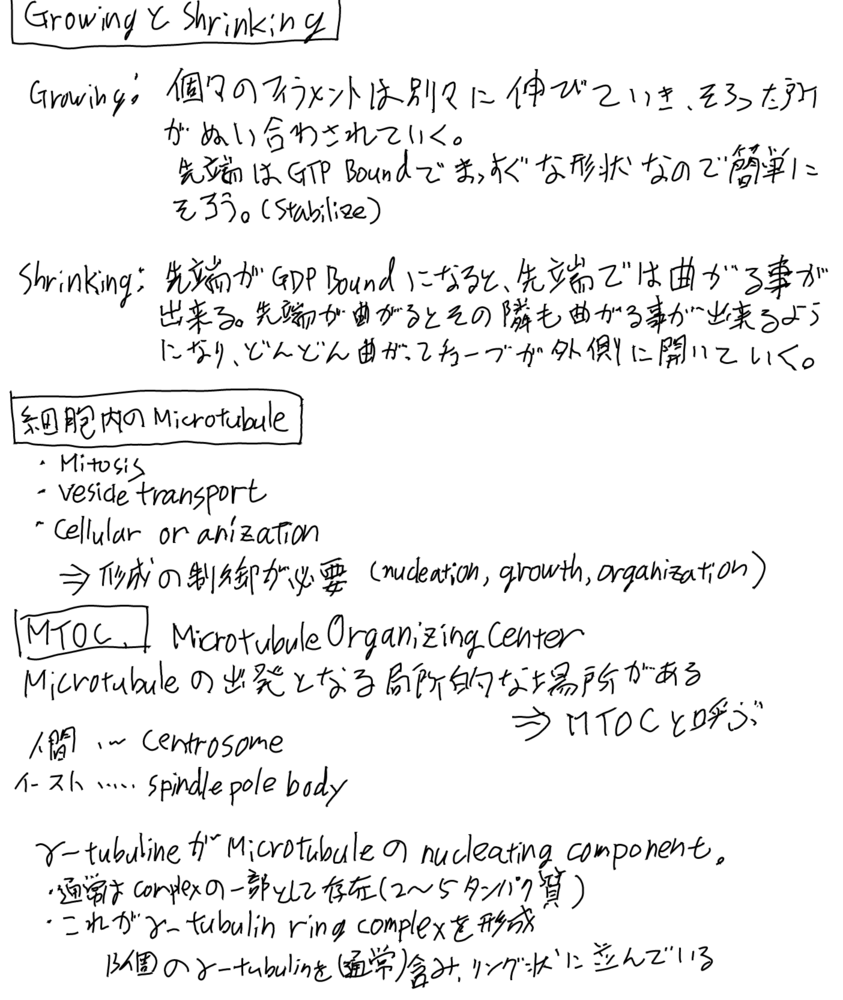 Growingと Shrinking
Growing: 個々のフィラメントは別々に伸びていき、そろった所
がぬい合わされていく。
先端はGTP Boundでまっすぐな形状なので簡単に
そろう。(Stabilize)
Shrinking: 先端がGDP Boundになると、先端では曲がる事が
出来る。先端が曲がるとその隣も曲がる事が出来るよう
になり、どんどん曲がってチューブが外側に開いていく。
細胞内のMicrotubule
・Mitosis
・vesicle transport
・Cellular or anization
⇒ 形成の制御が必要 (nucleation, growth, organization)
MTOC. Microtubule Organizing Center
Microtubuleの出発となる局所的な場所がある
⇒ MTOCと呼ぶ
人間 … Centrosome
イースト ..... spindle pole body
γ-tubulineがMicrotubuleのnucleating component。
・通常はcomplexの一部として存在(2〜5タンパク質)
・これがγ-tubulin ring complexを形成
13個のγ-tubulinを(通常)含み、リング状に並んでいる